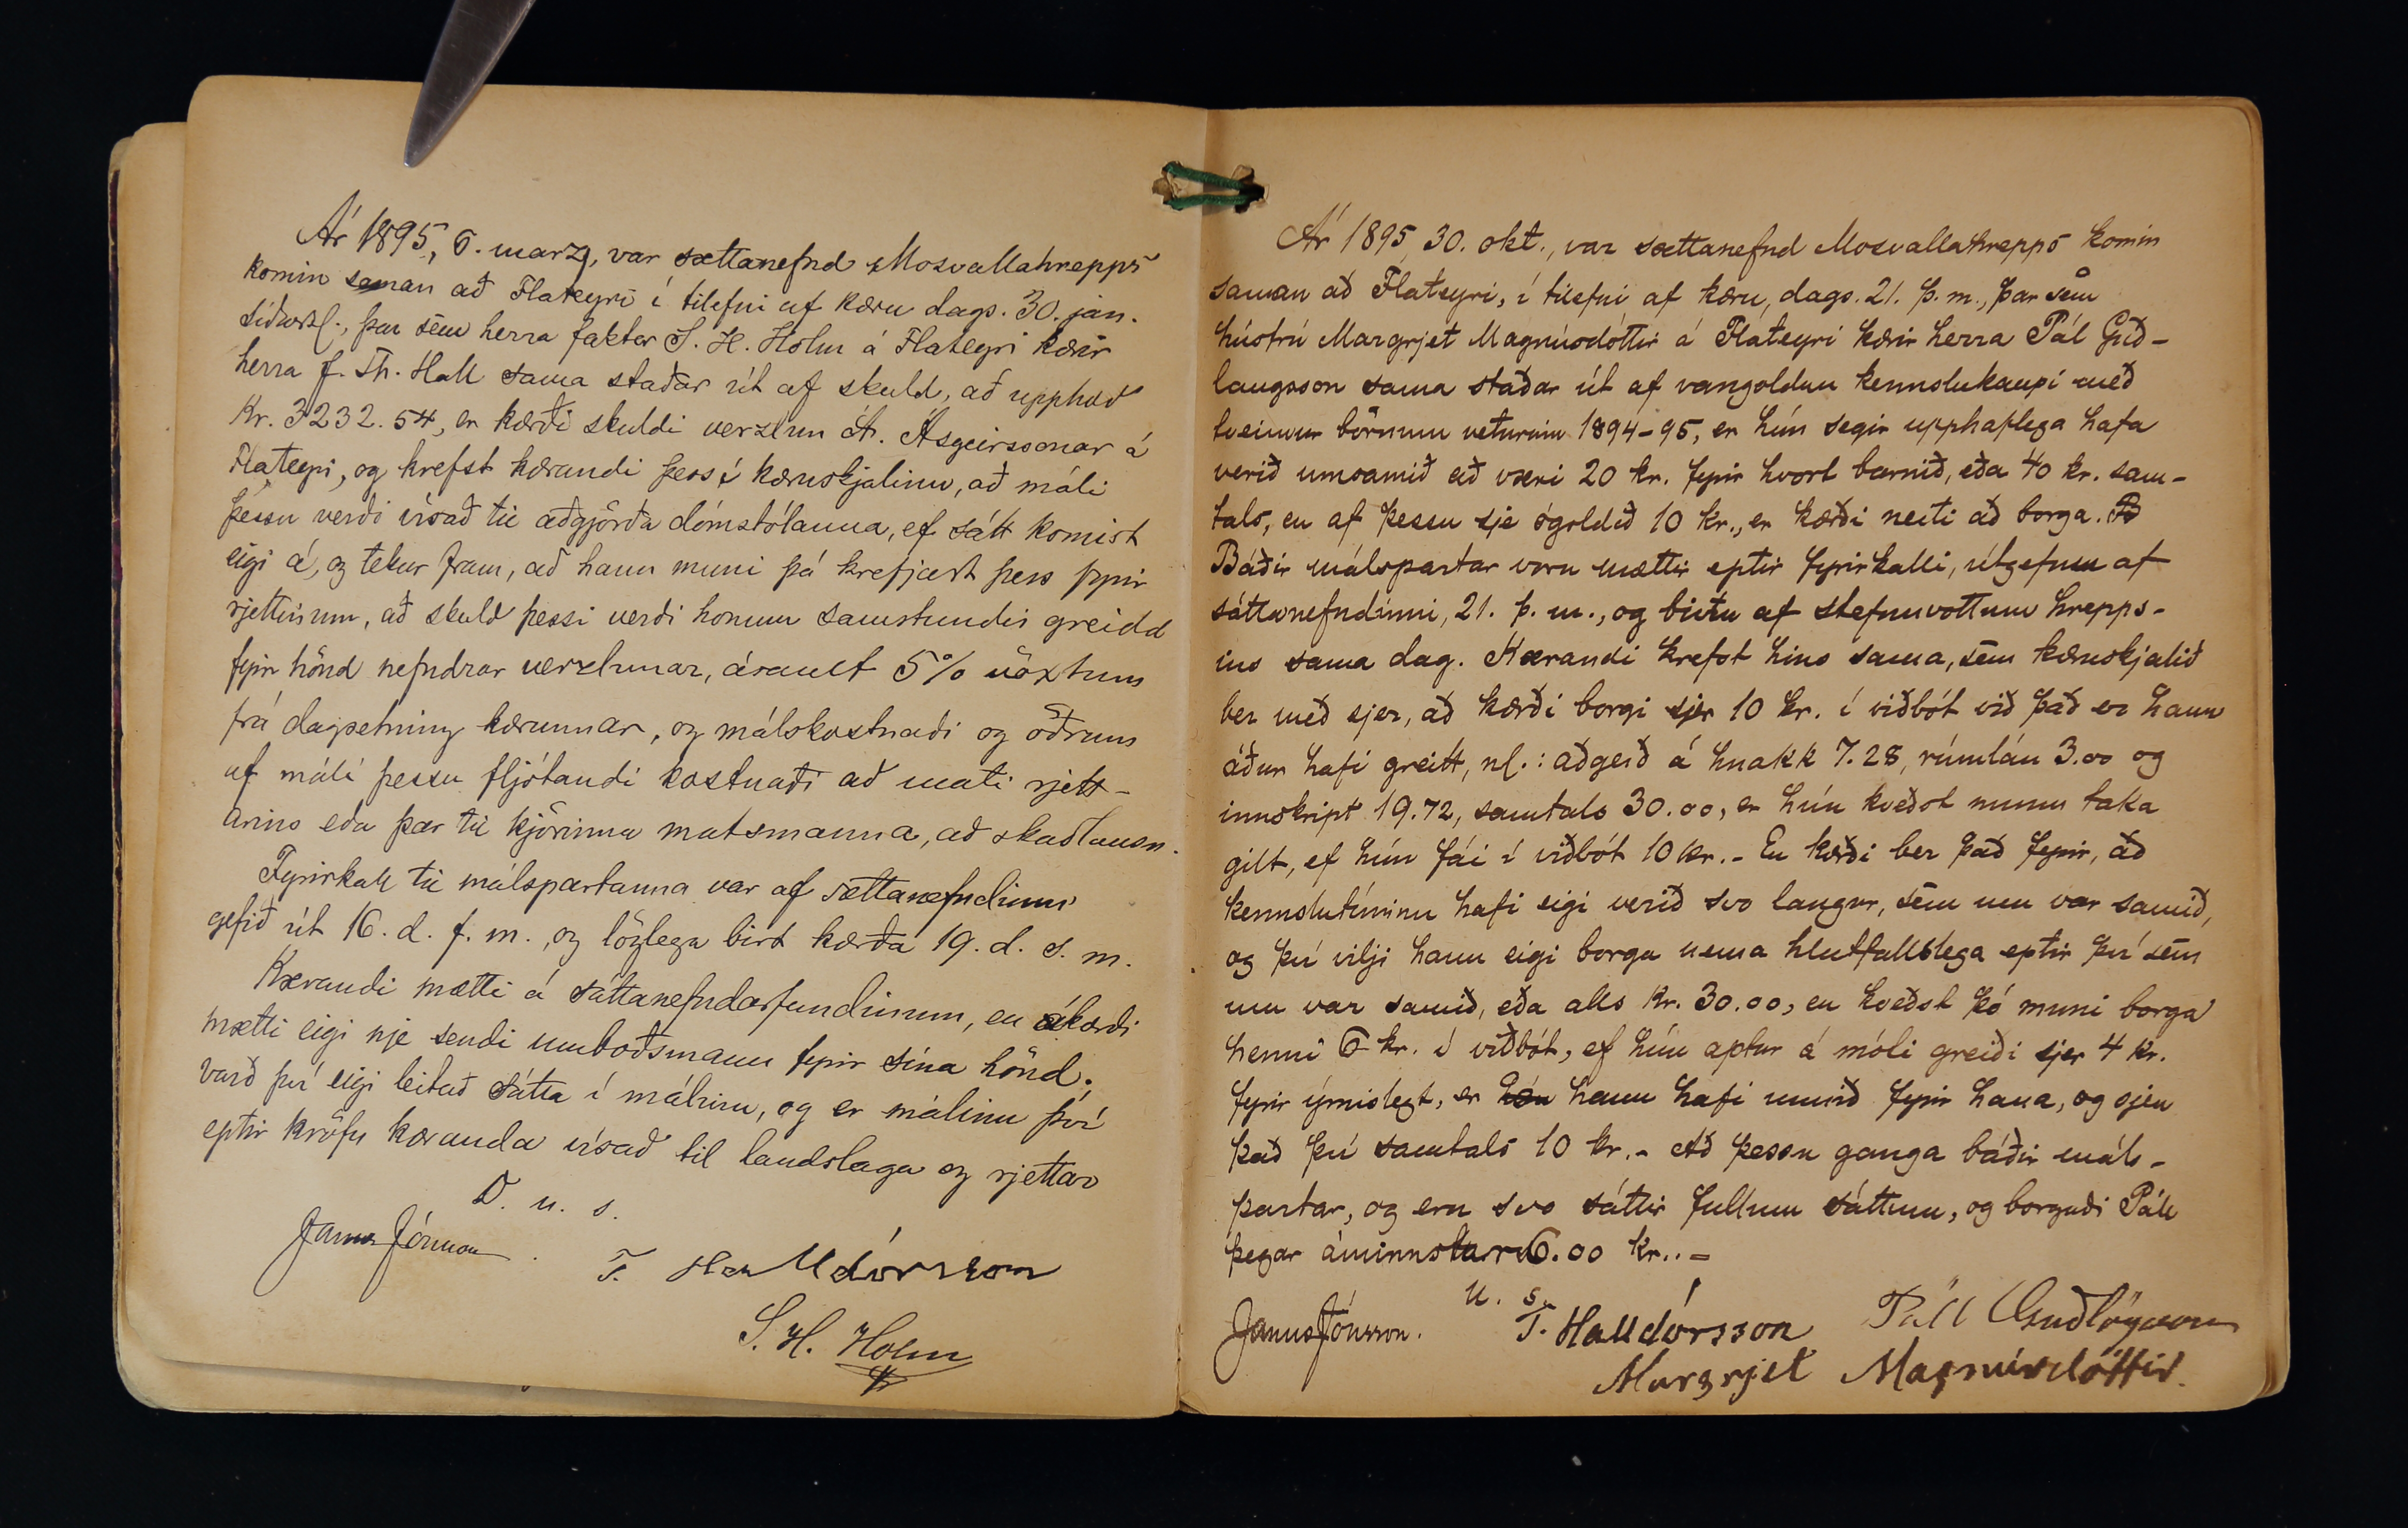 Ár 1895, 6. marz, var sættanefnd Mosvallahrepps
komin saman að Flateyri í tilefni af kæru dags. 30. jan.
síðastl., þar sem herra faktor S. H. Holm á Flateyri kærir
herra J. Th. Hall sama staðar út af skuld, að upphæð
Kr. 3232.54, er kærði skuldi verzlun Á. Ásgeirssonar á
Flateyri, og krefst kærandi þess í kæruskjalinu, að máli
þessu verði vísað til aðgjörða dómstólanna, ef sátt komist
eigi á, og tekur fram, að hann muni þá krefjast þess fyrir
rjettinum, að skuld þessi verði honum samstundis greidd
fyrir hönd nefndrar verzlunar, ásamt 5% vöxtum
frá dagsetning kærunnar, og málskostnaði og öðrum
af máli þessu fljótandi kostnaði að mati rjett-
arins eða þar til kjörinna matsmanna, að skaðlausu.
Fyrirkall til málspartanna var af sættanefndinni
gefið út 16. d. f. m., og löglega birt kærða 19. d. s. m.
Kærandi mætti á sáttanefndarfundinum, en kærði
mætti eigi nje sendi umboðsmann fyrir sína hönd.
Varð því eigi leitað sátta í málinu, og er málinu því
eptir kröfu kæranda vísað til landslaga og rjettar
D. u. s.
Janus Jónsson.
T. Halldórsson
S. H. Holm
Ár 1895, 30. okt., var sættanefnd Mosvallahrepps komin
saman að Flateyri, í tilefni af kæru, dags. 21. þ. m., þar sem
húsfrú Margrjet Magnúsdóttir á Flateyri kærir herra Pál Guð-
laugsson sama staðar út af vangoldnu kennslukaupi með
tveimur börnum veturinn 1894-95, er hún segir upphaflega hafa
verið umsamið að væri 20 kr. fyrir hvort barnið, eða 40 kr. sam-
tals, en af þessu sje ógoldið 10 kr., er kærði neiti að borga.
Báðir málspartar voru mættir eptir fyrirkalli, útgefnu af
sáttanefndinni, 21. þ. m., og birtu af stefnuvottum hrepps-
ins sama dag. Kærandi krefst hins sama, sem kæruskjalið
ber með sjer, að kærði borgi sjer 10 kr. í viðbót við það er hann
áður hafi greitt, nl.: aðgerð á hnakk 7.28, rúmlán 3.00 og
innskript 19.72, samtals 30.00, er hún kveðst munu taka
gilt, ef hún fái í viðbót 10 kr. - En kærði ber það fyrir, að
kennslutíminn hafi eigi verið svo langur, sem um var samið,
og því vilji hann eigi borga nema hlutfallslega eptir því sem
um var samið, eða alls kr. 30.00, en kveðst þó muni borga
henni 6 kr. í viðbót, ef hún aptur á móti greiði sjer 4 kr.
fyrir ýmislegt, er hún hann hafi unnið fyrir hana, og sjeu
það því samtals 10 kr. - Að þessu ganga báðir máls-
partar, og eru svo sáttir fullum sáttum, og borgaði Páll
þegar áminnstar 6.00 kr.. -
U. s.
Janus Jónsson.
T. Halldórsson
Páll Guðlögsson
Margrjet Magnúsdóttir.